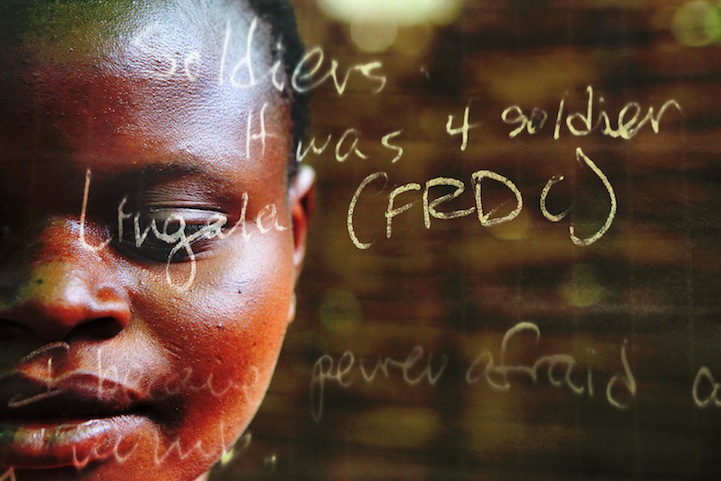 Soldiers.
It was 4 soldier
Lingala (FRDC)
I became afraid